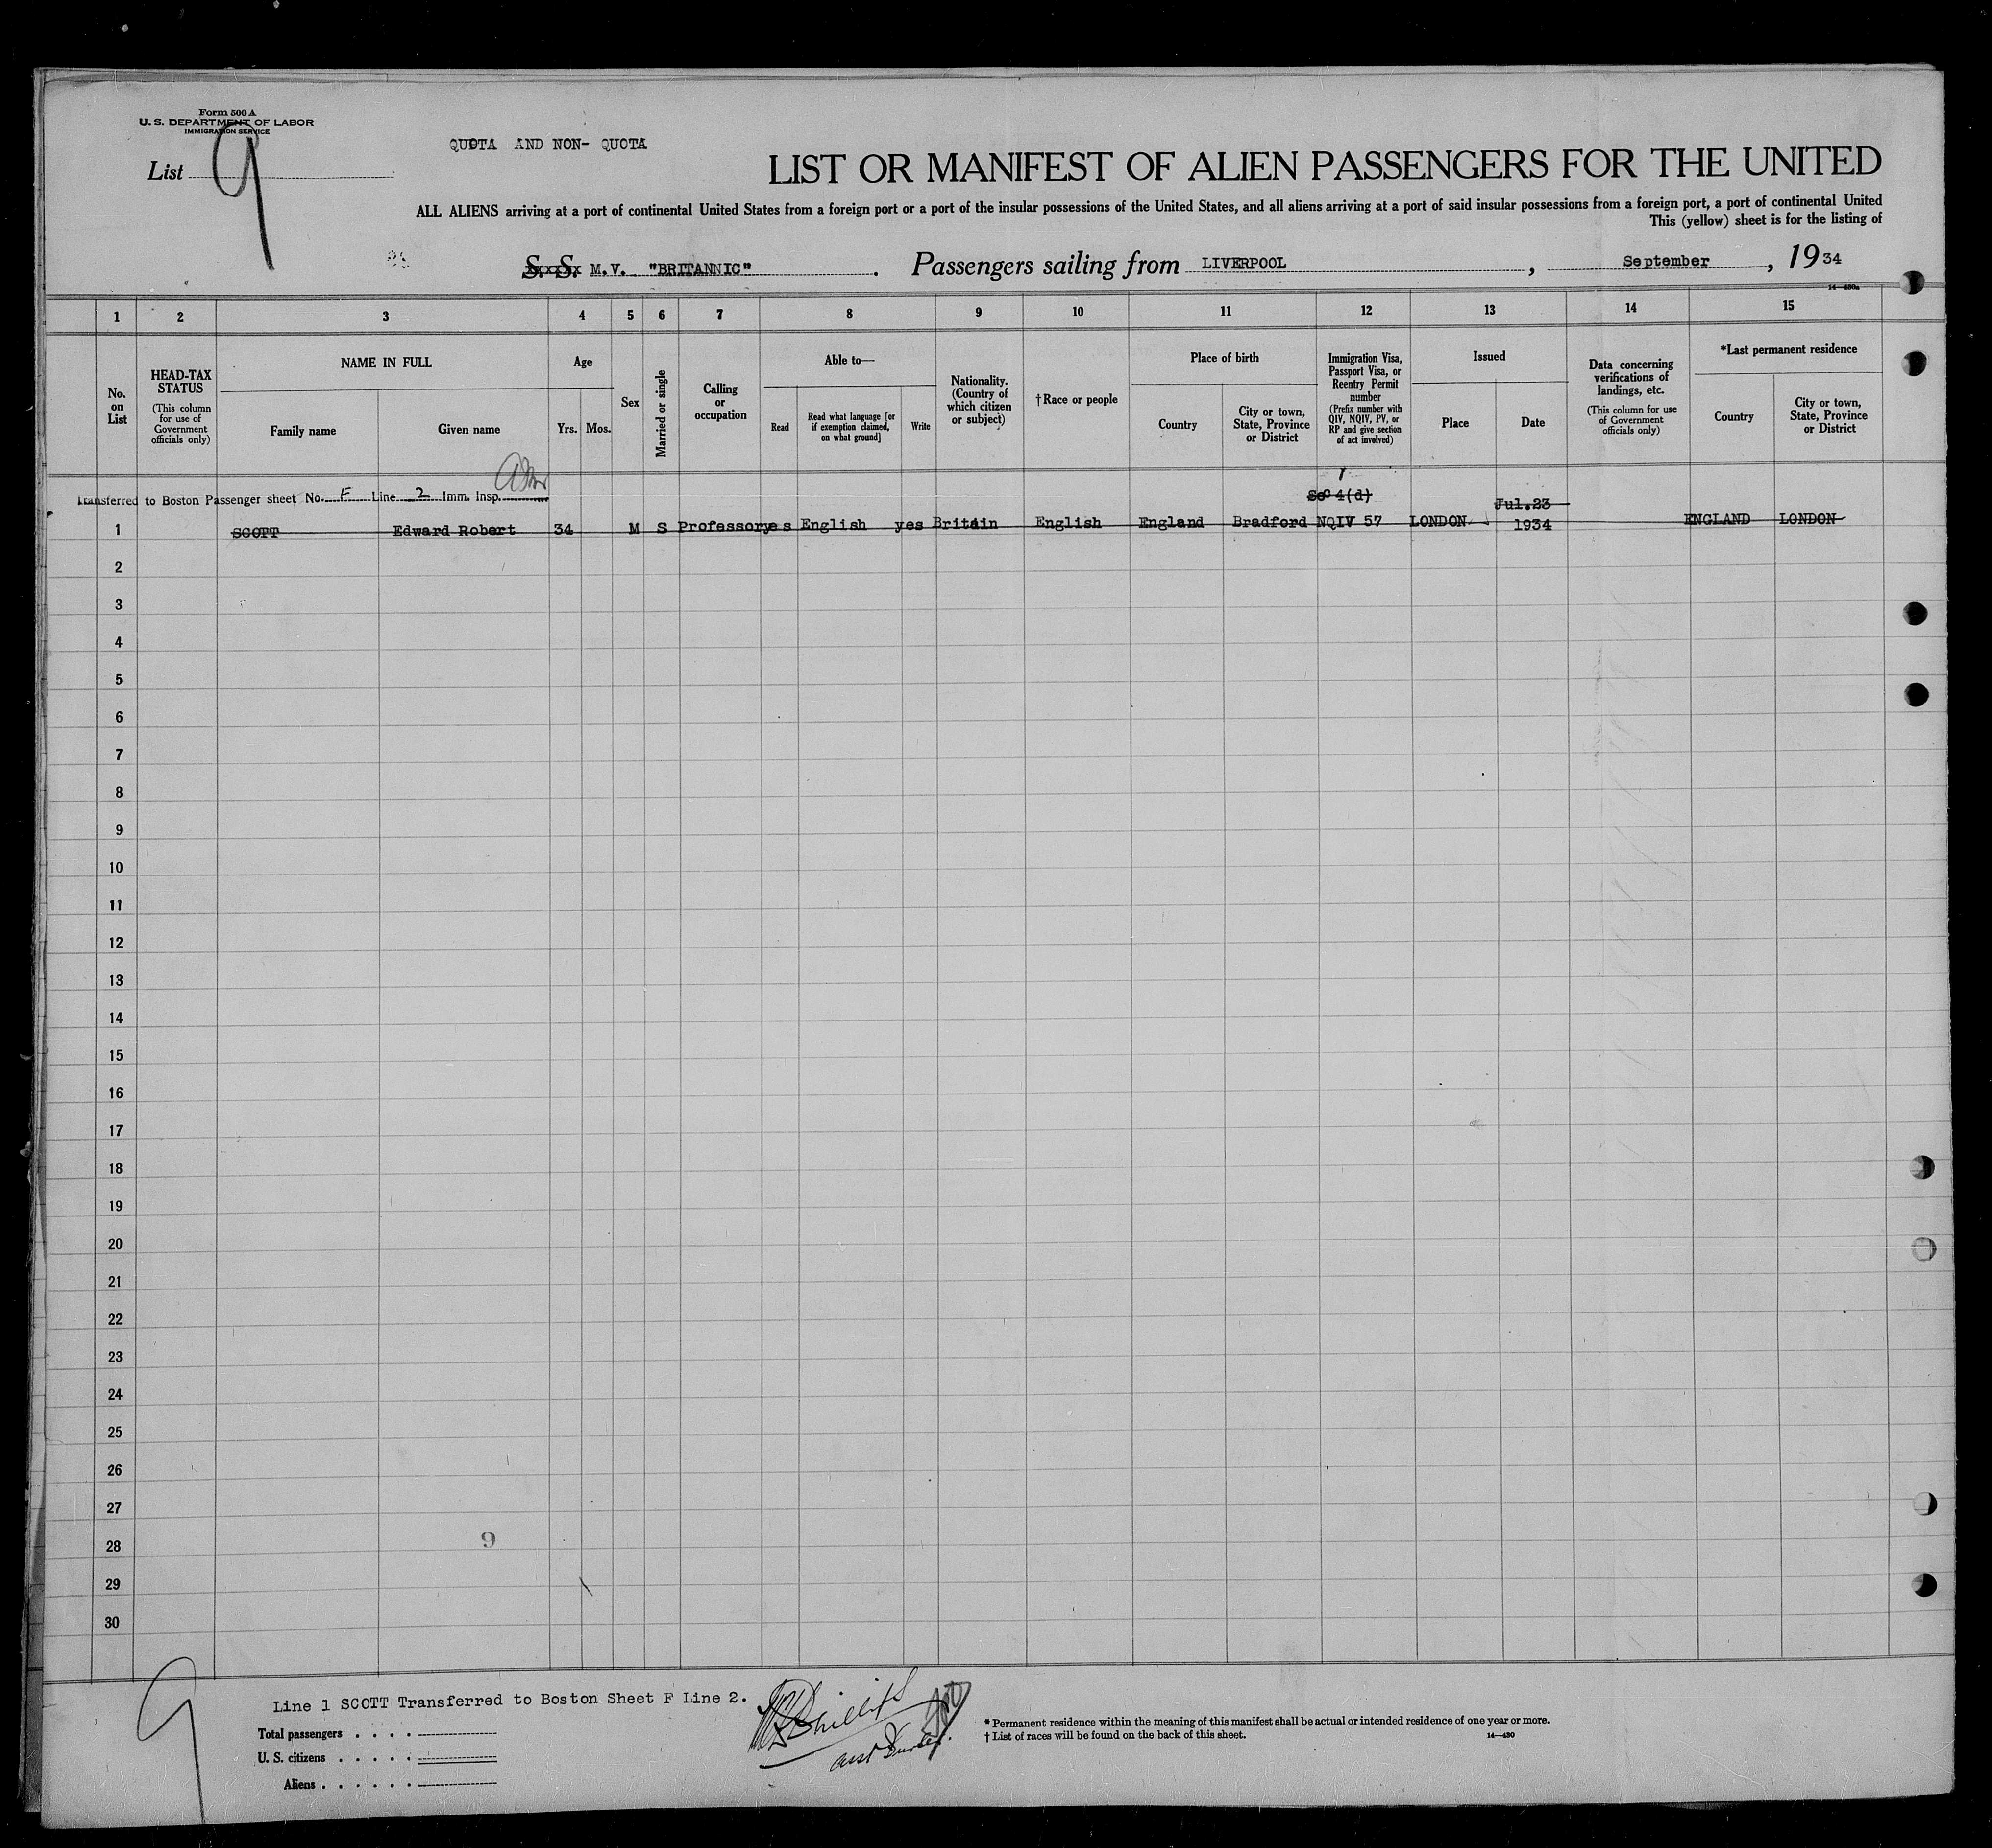 Form 500 A
U. S. DEPARTMENT OF LABOR
IMMIGRATION SERVICE
List 9
QUOTA AND NON- QUOTA
LIST OR MANIFEST OF ALIEN PASSENGERS FOR THE UNITED
ALL ALIENS arriving at a port of continental United States from a foreign port or a port of the insular possessions of the United States, and all aliens arriving at a port of said insular possessions from a foreign port, a port of continental United
This (yellow) sheet is for the listing of
S. S. M.V. "BRITANNIC" . Passengers sailing from LIVERPOOL , September , 19 34
14—430a
1 2 3 4 5 6 7 8 9 10 11 12 13 14 15
No. on List
HEAD-TAX STATUS
(This column for use of Government officials only)
NAME IN FULL
Family name Given name
Age
Yrs. Mos.
Sex
Married or single
Calling or occupation
Able to—
Read
Read what language [or if exemption claimed, on what ground]
Write
Nationality. (Country of which citizen or subject)
†Race or people
Place of birth
Country
City or town, State, Province or District
Immigration Visa, Passport Visa, or Reentry Permit number
(Prefix number with QIV, NQIV, PV, or RP and give section of act involved)
Issued
Place Date
Data concerning verifications of landings, etc.
(This column for use of Government officials only)
*Last permanent residence
Country
City or town, State, Province or District
Transferred to Boston Passenger sheet No. F Line 2 Imm. Insp.
Sec 4(d) Jul.23
1 SCOTT Edward Robert 34 M S Professor yes English yes Britain English England Bradford NQIV 57 LONDON 1934 ENGLAND LONDON
2
3
4
5
6
7
8
9
10
11
12
13
14
15
16
17
18
19
20
21
22
23
24
25
26
27
28 9
29
30
9
Line 1 SCOTT Transferred to Boston Sheet F Line 2.
Total passengers . . . .
U. S. citizens . . . . .
Aliens . . . . . .
* Permanent residence within the meaning of this manifest shall be actual or intended residence of one year or more.
† List of races will be found on the back of this sheet.
14—430